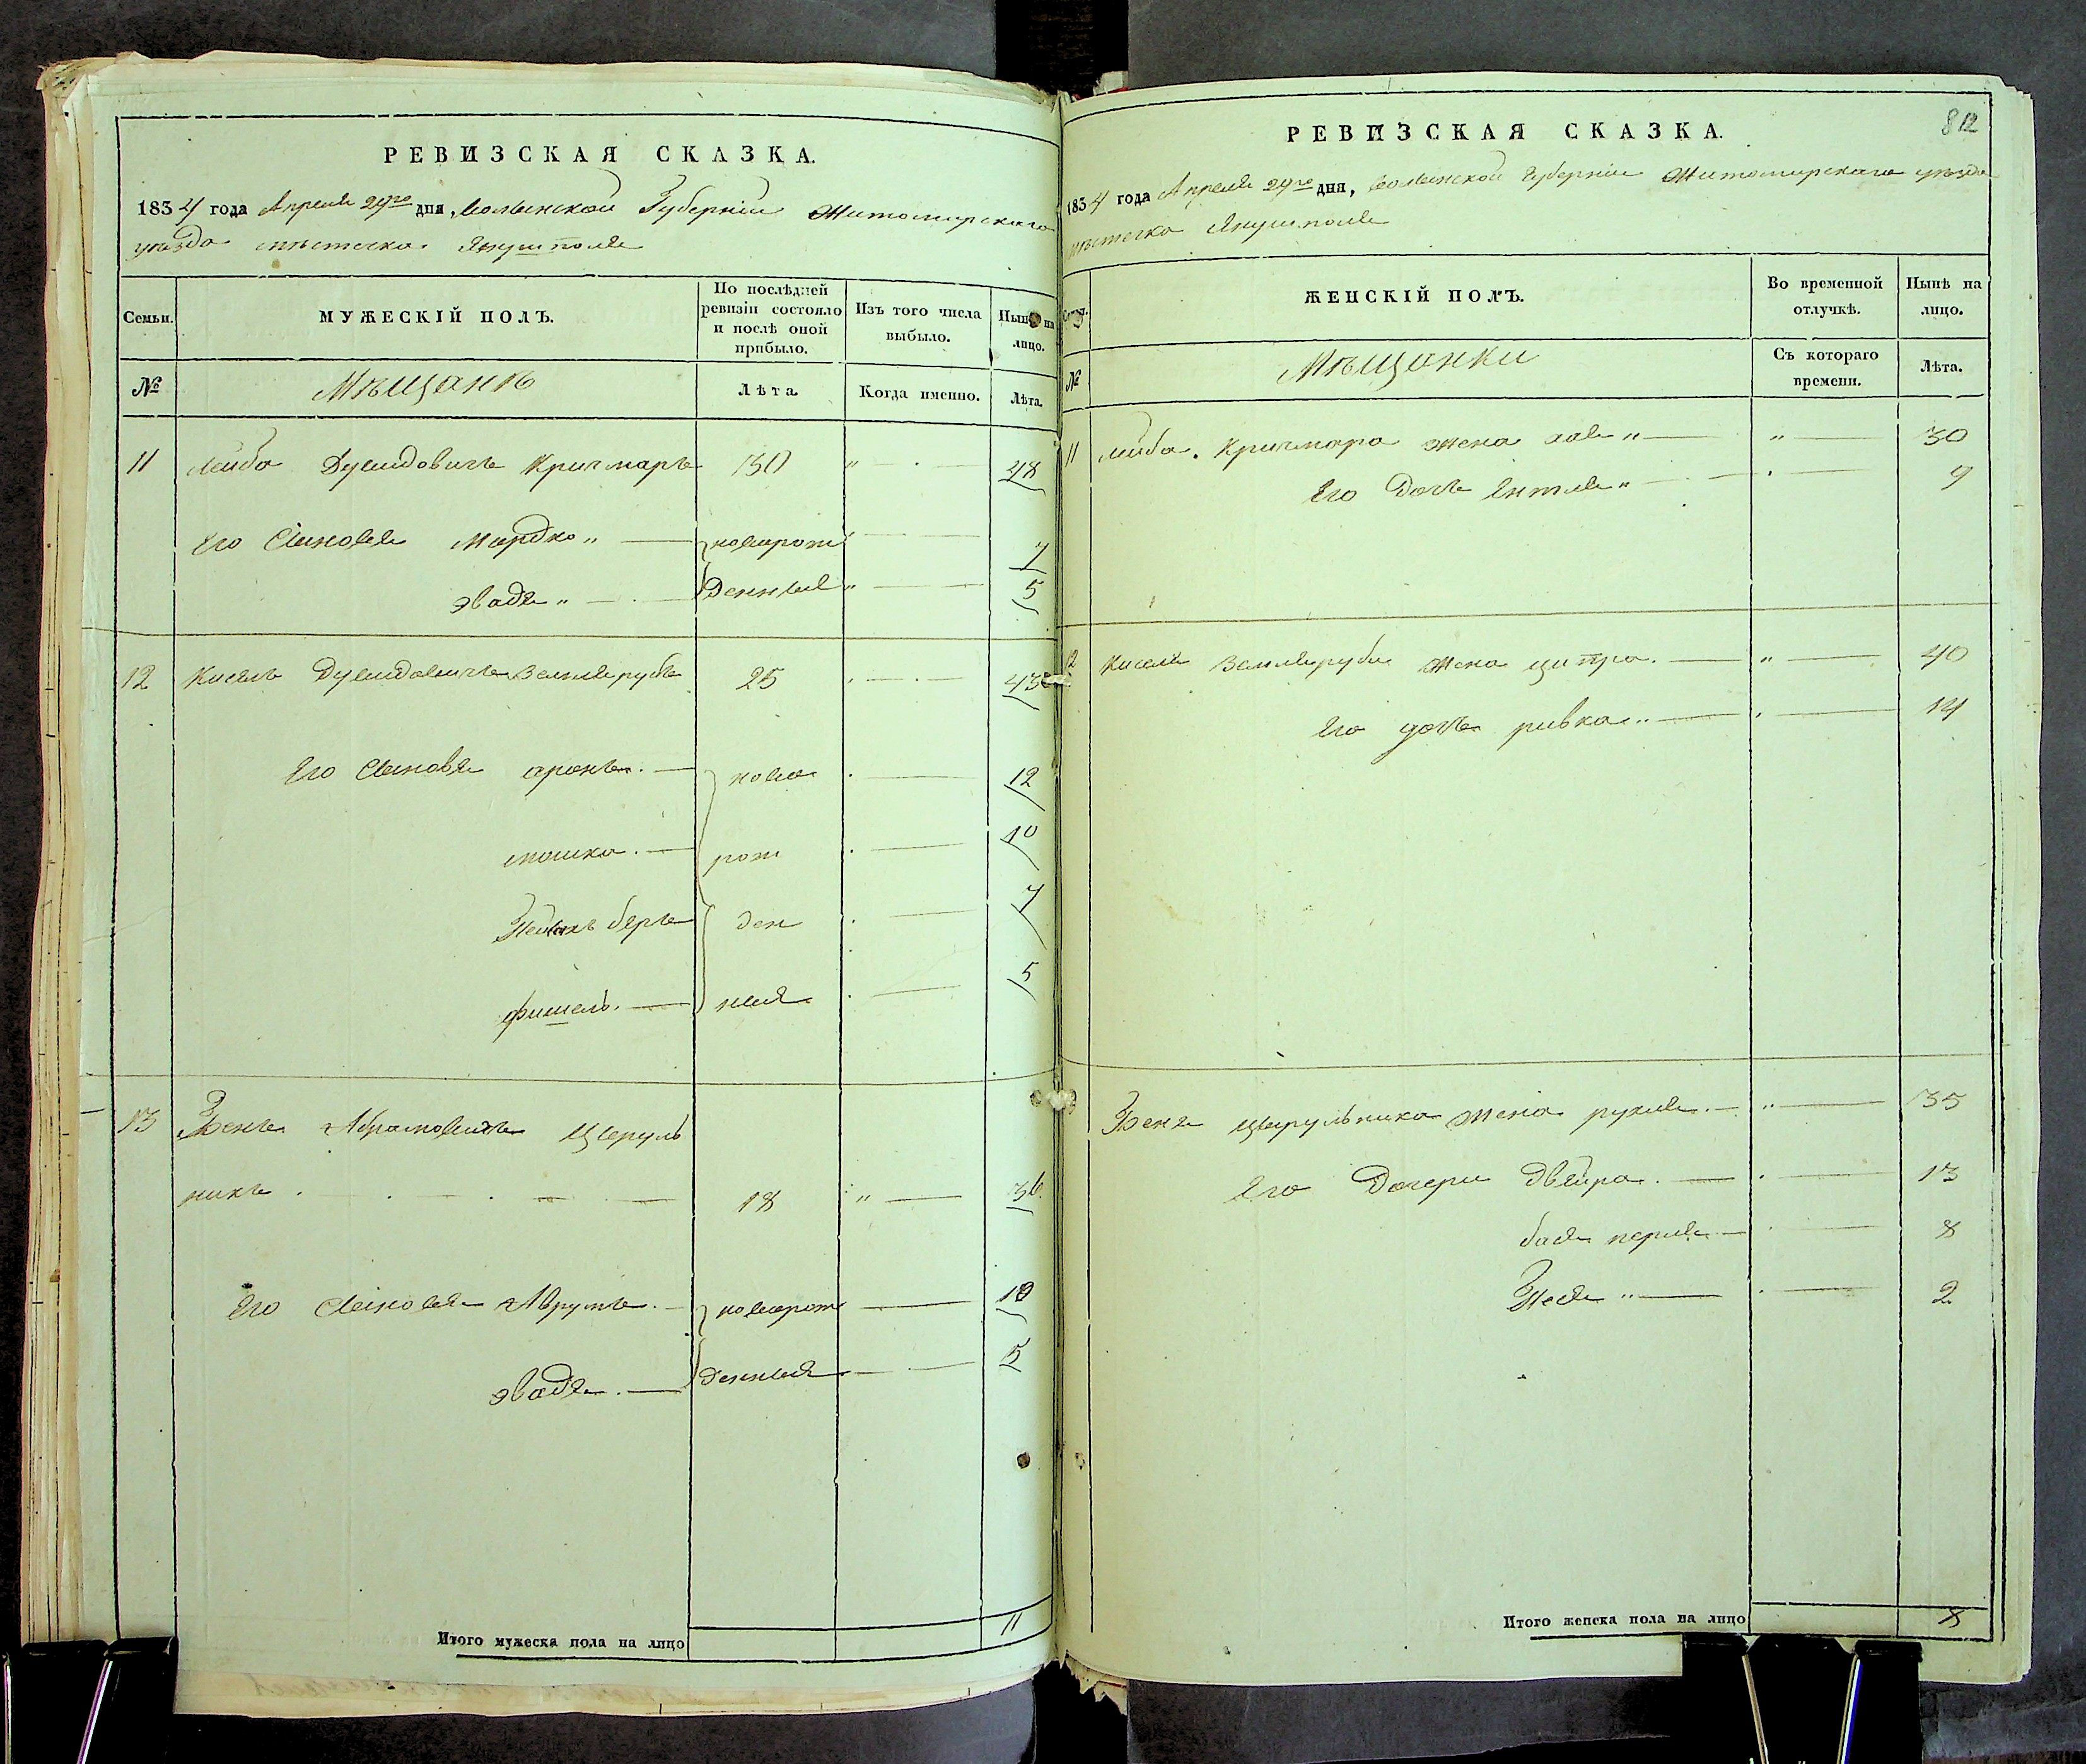 РЕВИЗСКАЯ СКАЗКА.
1834 года Апреля 29го дня, Волынской Губерніи Житомирскаго
уезда местечка Янушполя
Семьи.
МУЖЕСКІЙ ПОЛЪ.
По послѣдней ревизіи состояло и послѣ оной прибыло.
Изъ того числа выбыло.
Нынѣ на лицо.
№
Мѣщанѣ
Лѣта
Когда именно.
Лѣта.
11 Лейба Дувидовичъ Кричмаръ 30 " 48
Его Сыновя Мордко " новорож " 7
эвадя " денныя " 5
12 Кисель Дувидовичъ Землярубъ 25 43
Его Сыновя аронъ. ново 12
мошко. рож 10
беръ ден 7
фишель. ныя 5
13 Бенъ Абрамовичъ Цюруль
никъ 18 " 36
Его Сыновя Аврумъ. новорож 10
эвадя. денныя 5
Итого мужеска пола на лицо 11
812
РЕВИЗСКАЯ СКАЗКА.
1834 года Апреля 29го дня, Волынской Губерніи Житомирскаго уезда
местечка Янушполя
Семьи.
ЖЕНСКІЙ ПОЛЪ.
Во временной отлучкѣ.
Нынѣ на лицо.
№
Мѣщанки
Съ котораго времени.
Лѣта.
11 Лейба Кричмара жена хая " " 30
Его дочь Ентля " 9
12 Киселя Земляруба жена ципра. " 40
Его дочь ривка " 14
Беня Цюрульника жена рухля. " 35
Его Дочери Двейра. 13
бася перля 8
" 2
Итого женска пола на лицо 8